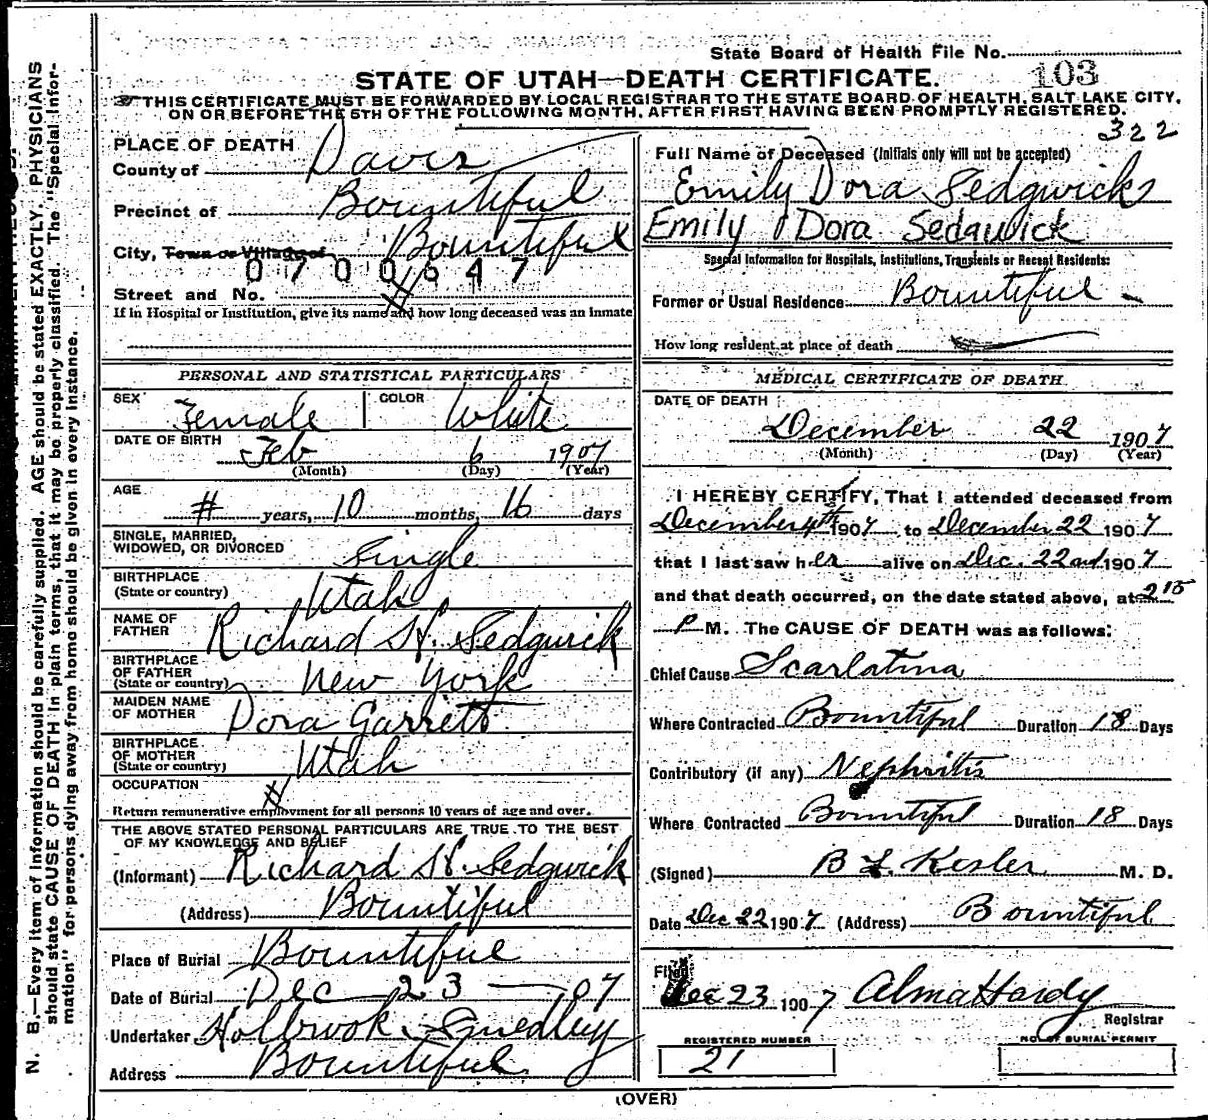 State Board of Health File No.
103
STATE OF UTAH—DEATH CERTIFICATE.
THIS CERTIFICATE MUST BE FORWARDED BY LOCAL REGISTRAR TO THE STATE BOARD OF HEALTH, SALT LAKE CITY,
ON OR BEFORE THE 5TH OF THE FOLLOWING MONTH, AFTER FIRST HAVING BEEN PROMPTLY REGISTERED.
322
PLACE OF DEATH
County of Davis
Precinct of Bountiful
City, Town or Village of Bountiful
0700547
Street and No. #
If in Hospital or Institution, give its name and how long deceased was an inmate
Full Name of Deceased (Initials only will not be accepted)
Emily Dora Sedgwicks
Emily Dora Sedgwick
Special Information for Hospitals, Institutions, Transients or Recent Residents:
Former or Usual Residence Bountiful
How long resident at place of death
PERSONAL AND STATISTICAL PARTICULARS
SEX Female COLOR White
DATE OF BIRTH Feb 6 1907
(Month) (Day) (Year)
AGE # years, 10 months, 16 days
SINGLE, MARRIED,
WIDOWED, OR DIVORCED Single
BIRTHPLACE
(State or country) Utah
NAME OF
FATHER Richard H. Sedgwick
BIRTHPLACE
OF FATHER
(State or country) New York
MAIDEN NAME
OF MOTHER Dora Garrett
BIRTHPLACE
OF MOTHER
(State or country) Utah
OCCUPATION #
Return remunerative employment for all persons 10 years of age and over.
THE ABOVE STATED PERSONAL PARTICULARS ARE TRUE TO THE BEST
OF MY KNOWLEDGE AND BELIEF
(Informant) Richard H. Sedgwick
(Address) Bountiful
Place of Burial Bountiful
Date of Burial Dec 23 — 07
Undertaker Holbrook Smedley
Address Bountiful
MEDICAL CERTIFICATE OF DEATH
DATE OF DEATH
December 22 1907
(Month) (Day) (Year)
I HEREBY CERTIFY, That I attended deceased from
December 4th 1907 to December 22 1907
that I last saw her alive on Dec. 22nd 1907
and that death occurred, on the date stated above, at 2 15
P M. The CAUSE OF DEATH was as follows:
Chief Cause Scarlatina
Where Contracted Bountiful Duration 18 Days
Contributory (if any) Nephritis
Where Contracted Bountiful Duration 18 Days
(Signed) B L. Kesler M. D.
Date Dec 22 1907 (Address) Bountiful
Filed Dec 23 1907 Alma Hardy
Registrar
REGISTERED NUMBER
21
NO. OF BURIAL PERMIT
(OVER)
N. B.—Every item of information should be carefully supplied. AGE should be stated EXACTLY. PHYSICIANS
should state CAUSE OF DEATH in plain terms, that it may be properly classified. The "Special Infor-
mation" for persons dying away from home should be given in every instance.